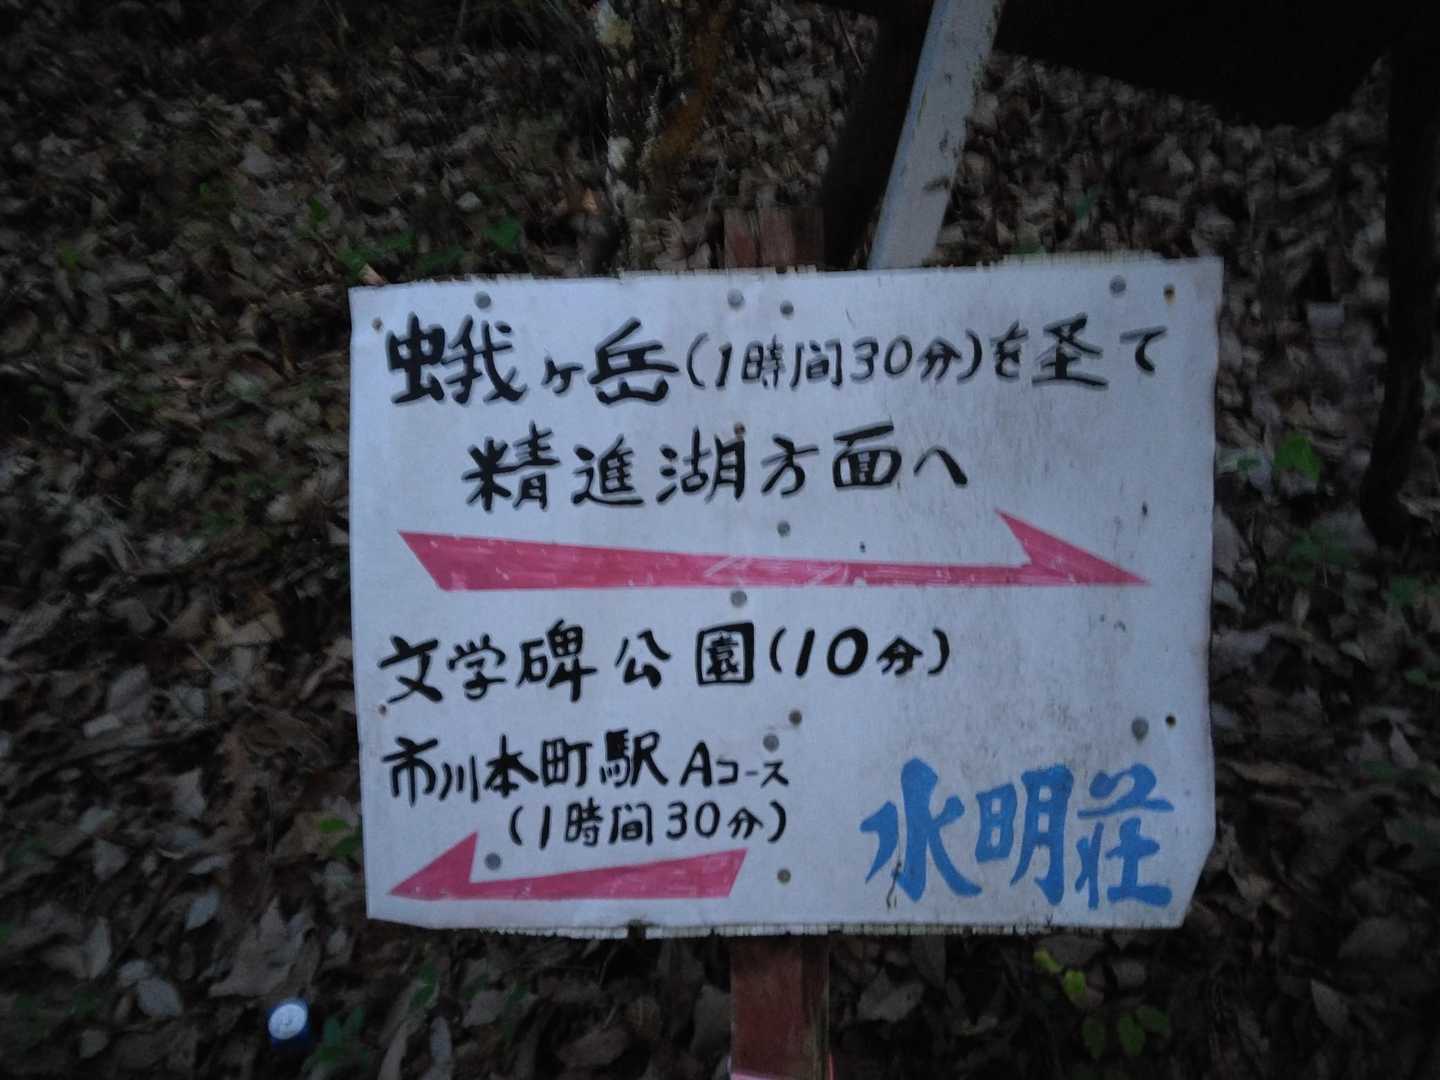 蛾ヶ岳(1時間30分)を圣て
精進湖方面へ
文学碑公園(10分)
市川本町駅Aコース
(1時間30分)
水明荘